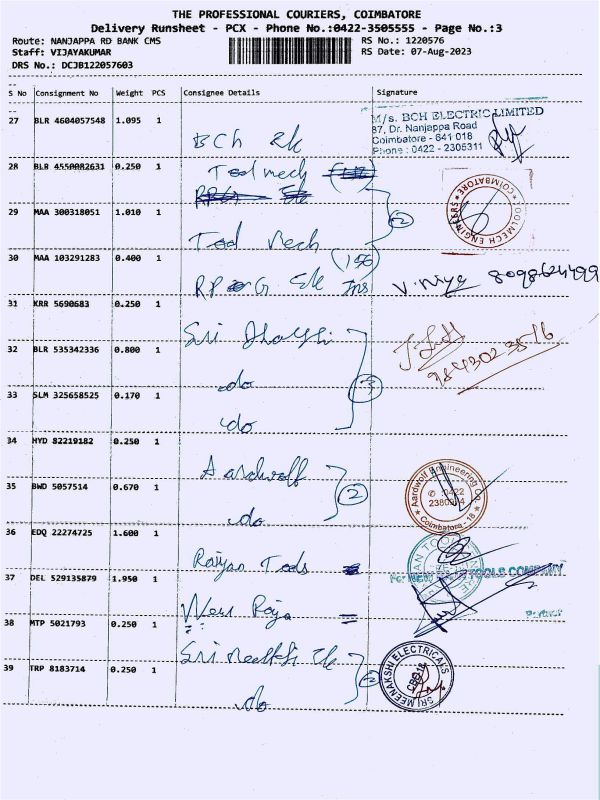 THE PROFESSIONAL COURIERS, COIMBATORE
Delivery Runsheet - PCX - Phone No.:0422-3505555 - Page No.:3
Route: NANJAPPA RD BANK CMS RS No.: 1220576
Staff: VIJAYAKUMAR RS Date: 07-Aug-2023
DRS No.: DCJB122057603
S No Consignment No Weight PCS Consignee Details Signature
27 BLR 4604057548 1.095 1 BCh Ek
M/s. BCH ELECTRIC LIMITED
87, Dr. Nanjappa Road
Coimbatore - 641 018
Phone : 0422 - 2305311
28 BLR 4550082631 0.250 1 Tool mech
29 MAA 300318051 1.010 1 Tool Mech 2
TOOLMECH ENGINEERS COIMBATORE
30 MAA 103291283 0.400 1 RP G Ek Ins (156) V. niya 8098624499
31 KRR 5690683 0.250 1 Sri
32 BLR 535342336 0.800 1 do 3
33 SLM 325658525 0.170 1 do
34 HYD 82219182 0.250 1 Aardwolf
35 BWD 5057514 0.670 1 do 2
Aardwolf Engineering Co.
✆ : 0422
Coimbatore - 18
36 EDQ 22274725 1.600 1 Raijan Tools
37 DEL 529135879 1.950 1 New Raja
For NEW TOOLS COMPANY
Partner
38 MTP 5021793 0.250 1 Sri meenakshi Ek
39 TRP 8183714 0.250 1 do 2
SRI MEENAKSHI ELECTRICALS
CBE-18